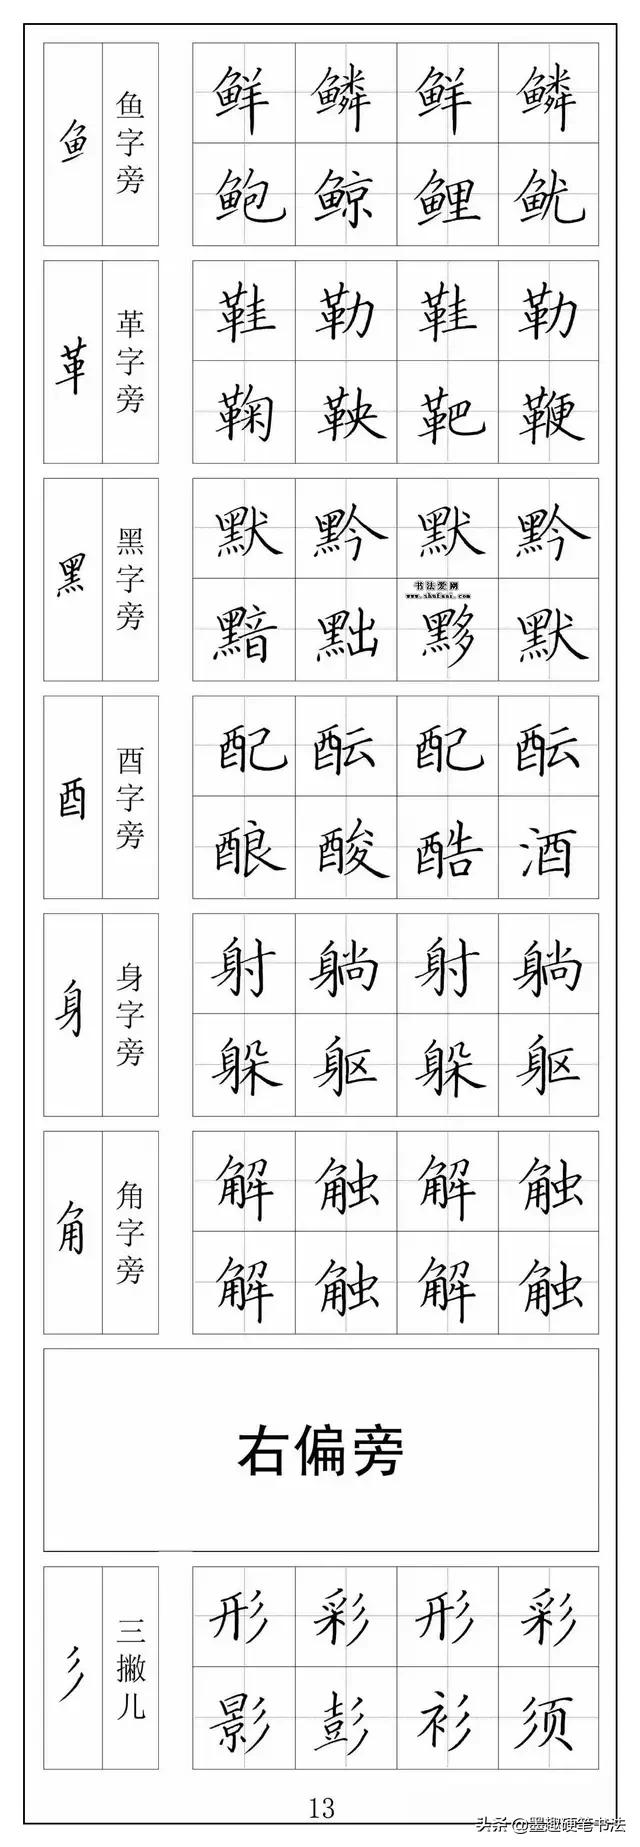 鱼 鱼字旁 鲜 鳞 鲜 鳞
鲍 鲸 鲤 鱿
革 革字旁 鞋 勒 鞋 勒
鞠 鞅 靶 鞭
黑 黑字旁 默 黔 默 黔
书法爱网
www.shufaai.com
黯 黜 黟 默
酉 酉字旁 配 酝 配 酝
酿 酸 酷 酒
身 身字旁 射 躺 射 躺
躲 躯 躲 躯
角 角字旁 解 触 解 触
解 触 解 触
右偏旁
彡 三撇儿 形 彩 形 彩
影 彭 衫 须
13
头条@墨趣硬笔书法